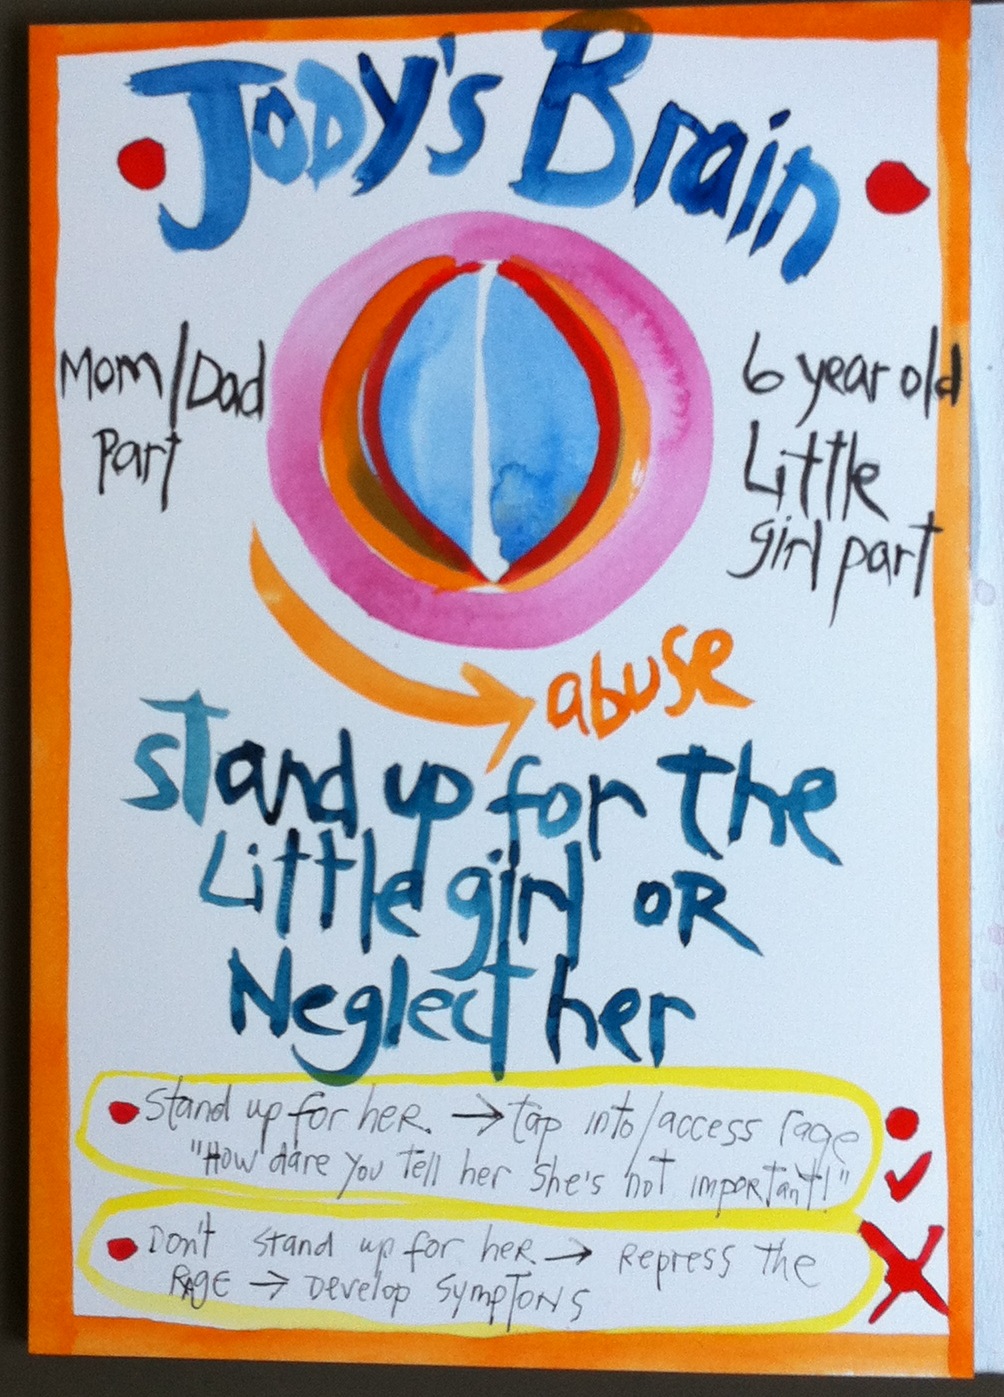 Jody's Brain
Mom/Dad
Part
6 year old
Little
girl part
abuse
Stand up for the
Little girl OR
Neglect her
Stand up for her. → tap into/access rage
"How dare you tell her she's not important!"
Don't stand up for her → Repress the
RAGE → Develop symptons